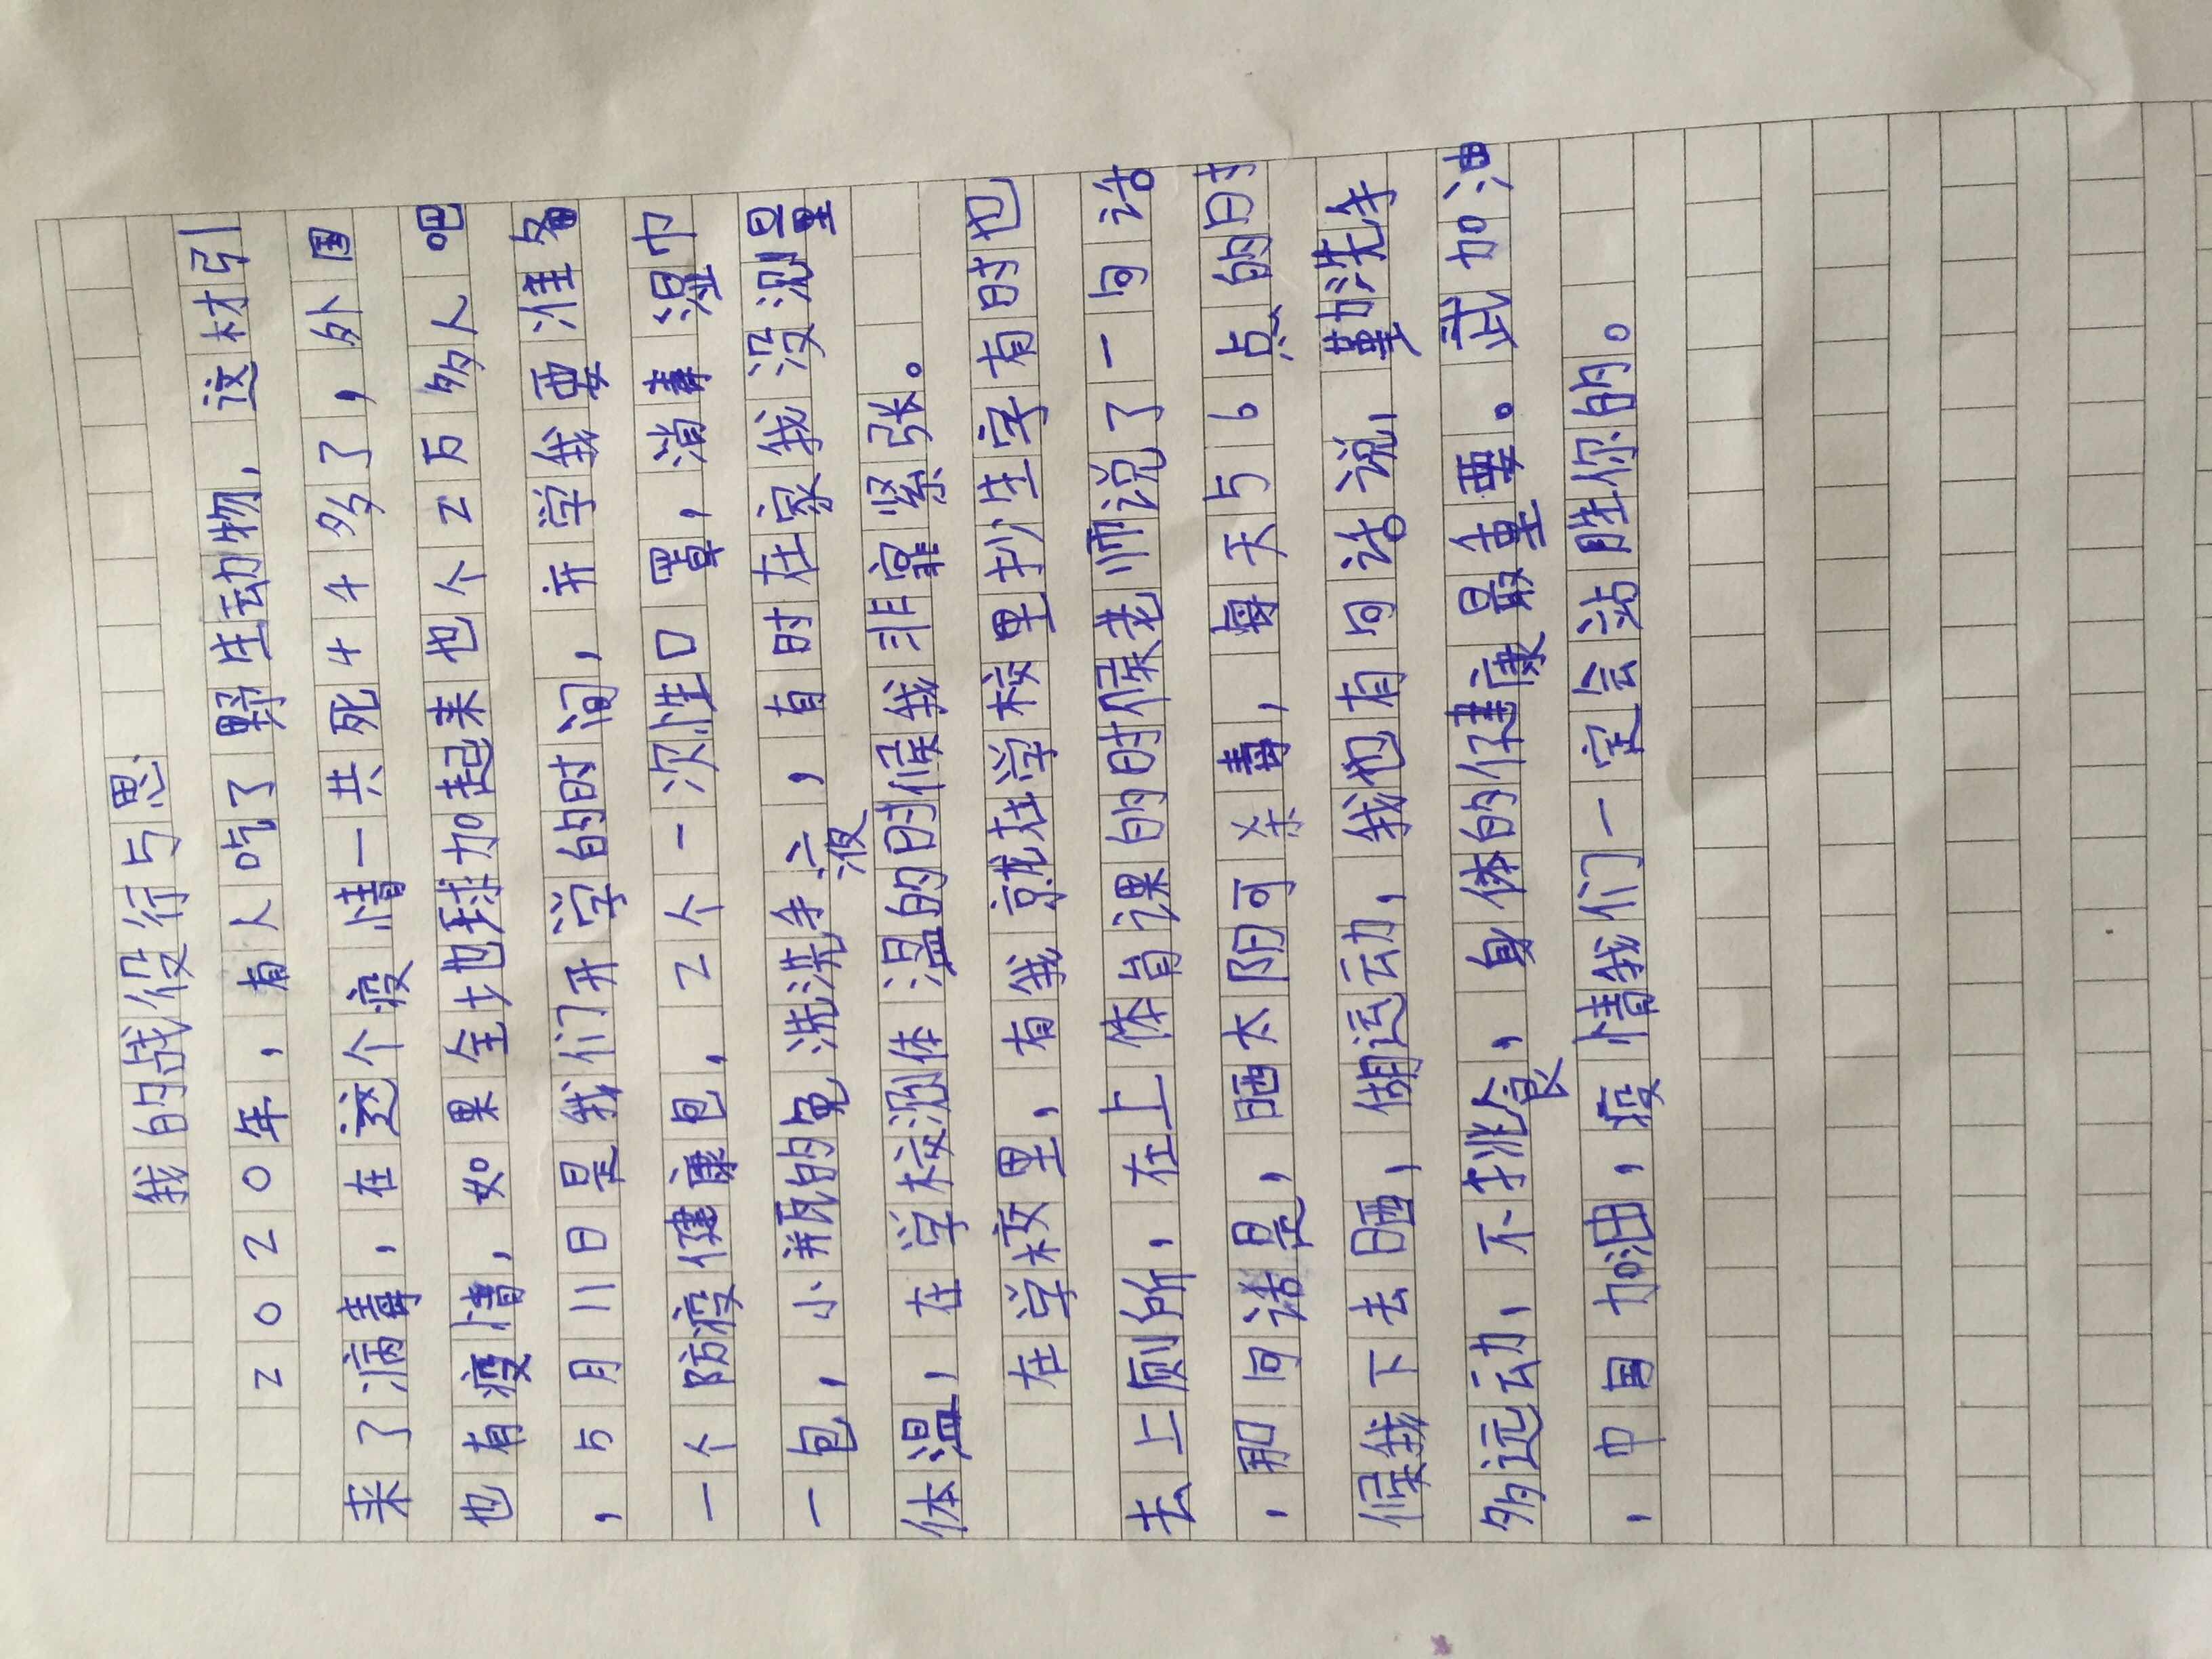 我的战役行与思
2020年，有人吃了野生动物，这材引
来了病毒，在这个疫情一共死444多了，外国
也有疫情，如果全地球加起来也个2万多人吧
，5月11日是我们开学的时间，开学我要准备
一个防疫健康包，2个一次性口罩，消毒湿巾
一包，小瓶的免洗洗手液，有时在家我没测量
体温，在学校测体温的时候我非常紧张。
在学校里，有我就在学校里抄生字有时也
去上厕所，在上体育课的时候老师说了一句话
，那句话是，晒太阳可杀毒，每天56点的时
候我下去晒，做运动，我也有句话说，勤洗手
多运动，不挑食，身体的健康最重要。武加油
，中国加油，疫情我们一定会站胜你的。